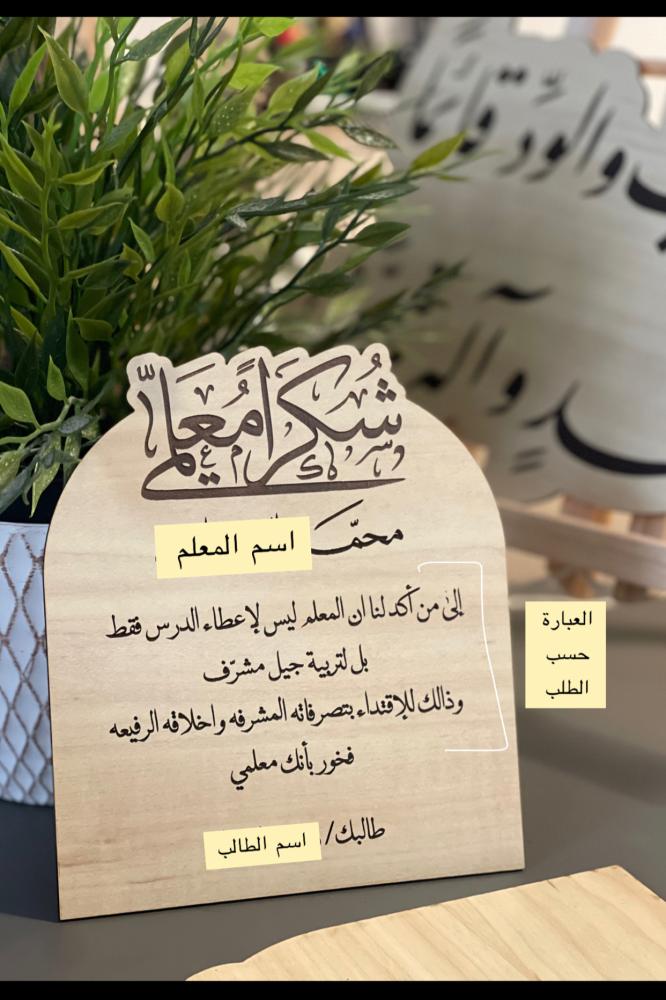 شُكرًا مُعلّمي
محمّد
اسم المعلم
إلى من أكد لنا ان المعلم ليس لإعطاء الدرس فقط
بل لتربية جيل مشرّف
وذالك للإقتداء بتصرفاته المشرفه واخلاقه الرفيعه
فخور بأنك معلمي
طالبك/
اسم الطالب
العبارة
حسب
الطلب